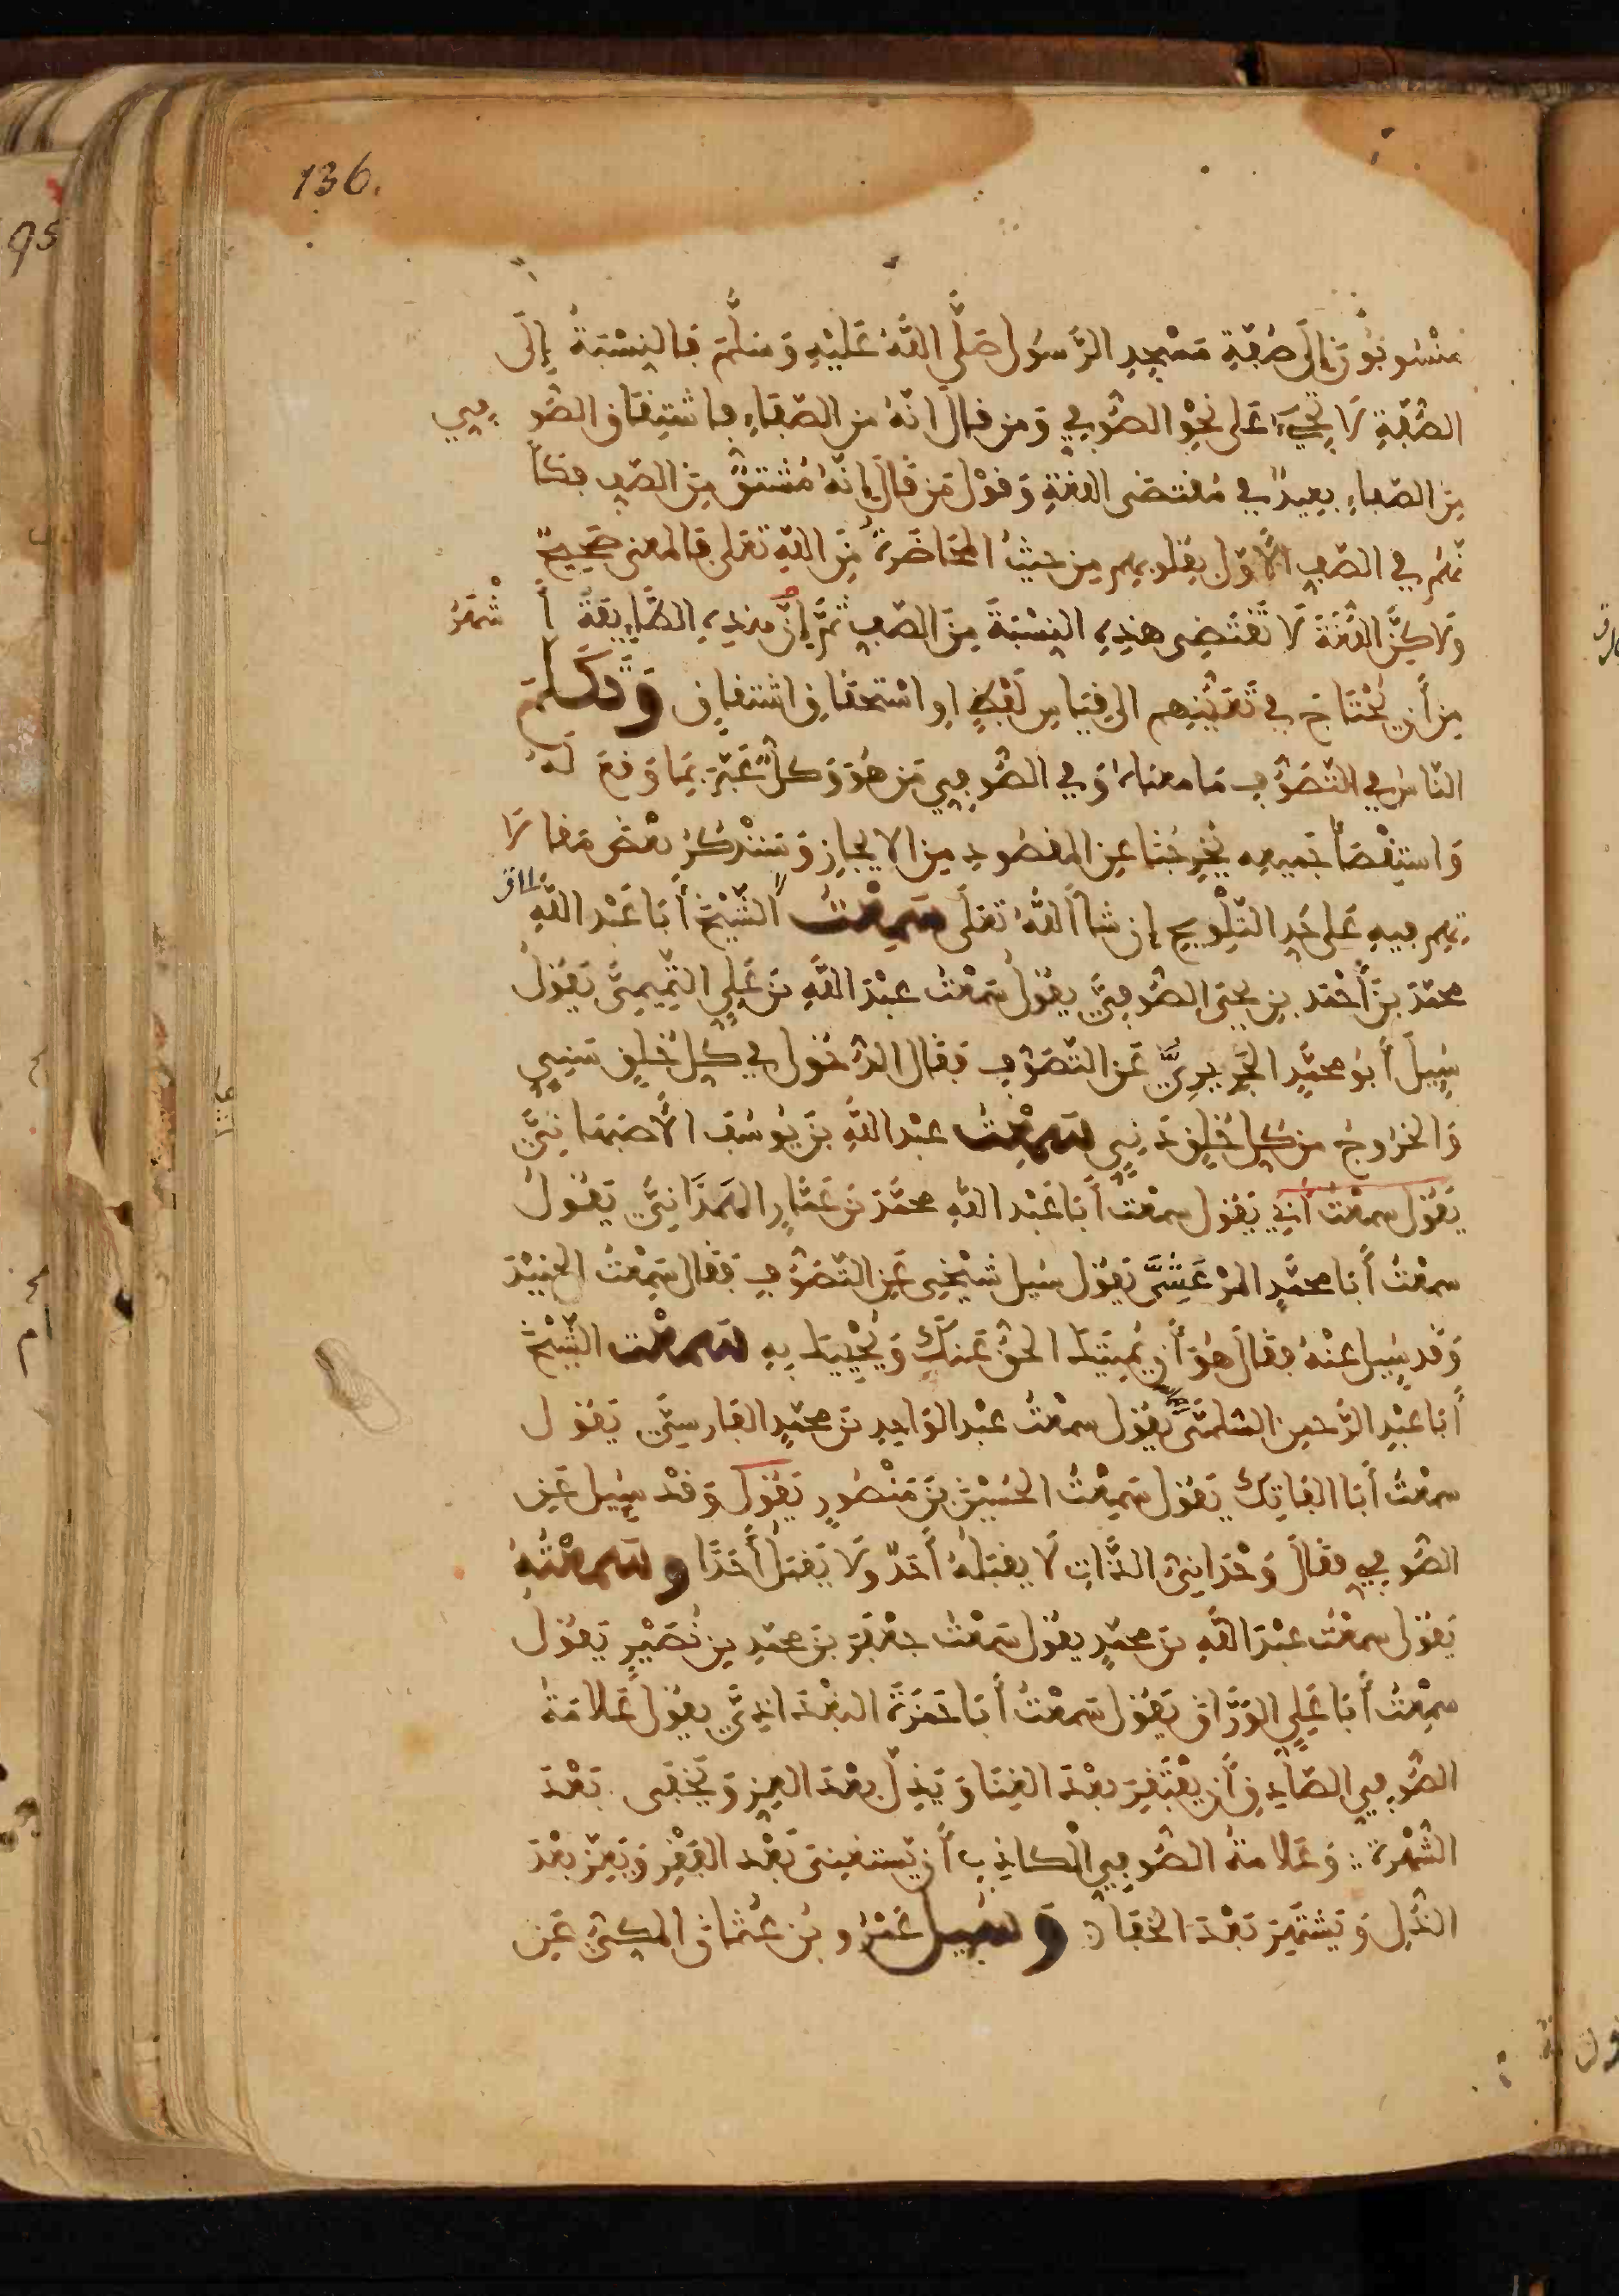 136.
95
مَنْسُوبُونَ إِلَى صُفَّةِ مَسْجِدِ الرَّسُولِ صَلَّى اللَّهُ عَلَيْهِ وَسَلَّمَ فَالنِّسْبَةُ إِلَى
الصُّفَّةِ لَا تَجِيءُ عَلَى نَحْوِ الصُّوفِي وَمَن قَالَ انَّهُ مِن الصَّفَاءِ فاشتِقَاق الصُّوفِي
مِنَ الصَّفاءِ بعيدٌ في مُقتضى اللغةِ وَقَوْلُ مَن قَالَ إِنَّهُ مُشْتَقٌّ مِنَ الصَّفِ فكأَ
نَّهُم في الصَّفِ الأَوَّلِ بِقُلُوبِهِم مِن حَيْثُ المُحَاضَرَة مِنَ اللَّهِ تَعَلَى فَالمعنى صَحِيحٌ
وَلَاكِنَّ اللُّغَةَ لَا تَقْتَضِى هذِهِ النِّسْبَةَ مِنَ الصَّفِ ثمَّ إِنَّ هذِهِ الطَّايِفَةَ أَشْهَرُ
مِن أَن يُحْتَاجَ فِي تَعَيُّنِهِم الى قِيَاسِ لَفْظٍ اوِ اسْتحقَاقِ اشتقاق وَتَكَلَّمَ
النَّاسُ فِي التَّصَوُّفِ مَا معناهُ وَفي الصُّوفِي مَن هُوَ وَكلٌّ عَبَّرَ بِمَا وَقعَ لَهُ
وَاسْتِقْصَأُ جَمِيعِهِ يُخْرِجُنَا عنِ المَقصُودِ مِن الايجَازِ وَسَنَذْكُرُ بَعْضَ مَقَالَا
تِهِم فِيهِ عَلى حَدِ التَّلْوِيحِ إِن شَاَ اللَّهُ تَعَلَى سَمِعْتُ الشَّيْخَ أَبَا عَبْد اللَّهِ
محمَّدَ بنَ أَحْمَد بنِ يحيَى الصُّوفِيَّ يقُولُ سَمِعْتُ عبْدَ اللَّهِ بنَ عَلِي التَّمِيمِيَّ يَقُولُ
سُيِلَ أَبُو محمَّدٍ الجُرَيرِيُّ عَن التَّصَوُّفِ فقَال الدُّخُول فِي كلِ خُلِقٍ سَنِيٍ
وَالخرُوجُ مِن كلِ خُلقٍ دَنِيٍ سَمِعْتُ عبْد اللَّهِ بنَ يُوسُفَ الأَصبَهَانِيَّ
يَقُولُ سمِعْتُ أَبِي يَقُولُ سمِعْتُ أَبَا عَبْد اللَّهِ محمَّدَ بنَ عَمَّارٍ الهَمَذَانِيَّ يَقُولُ
سمِعْتُ أَبَا محمَّدٍ المَرْعَشِيَّ يَقُولُ سُيِل شَيْخِي عَنِ التَّصَوُّفِ فَقَال سَمِعْتُ الجنَيْدَ
وَقَد سُيِلَ عنْهُ فقَال هُوَ أَن يُمِيتَكَ الحقُّ عَنكَ وَيُحْيِيَكَ بِهِ سَمِعْتُ الشَّيْخَ
أَبَا عَبْدِ الرَّحمنِ السُّلَمِيَّ يَقُولُ سمِعْتُ عبْد الوَاحِدِ بنَ محمَّدٍ الفَارِسِيَّ يَقُولُ
سمِعْتُ أَبَا الفَاتِك يَقُولُ سَمِعْتُ الحُسَيْنَ بْنَ مَنْصُورٍ يَقُولُ وَقَدْ سُيِل عَنِ
الصُّوفِي فقَالَ وَحْدَانِيُّ الذَّاتِ لَا يقبَلُهُ أَحَدٌ وَلَا يَقبَلُ أَحَدًا وَسَمِعْتُهُ
يَقُولُ سمِعْتُ عبْدَ اللَّهِ بنَ محمَّدٍ يقُولُ سَمِعْتُ جعْفَرَ بنَ محمَّدِ بنِ نُصَيْرٍ يَقُولُ
سمِعْتُ أَبَا عَلِيٍ الوَرَّاقَ يَقُولُ سَمِعْتُ أَبَا حَمْزَةَ البَغْدَاذِيَّ يقُولُ عَلَامَةُ
الصُّوفِي الصَّادِقِ أَن يَفْتَقِرَ بعْدَ الغِنَا وَيَذِلَّ بعْدَ العِزِ وَيَخْفَى بَعْدَ
الشُّهْرَةِ وَعَلَامَةُ الصُّوفِي الْكَاذِبِ أَن يَستغنِيَ بَعْد الفَقْرِ وَيَعِزَّ بعْدَ
الذُّلِ وَيَشتَهِرَ بَعْدَ الخفَاء وَسُيِل عَمْرُو بْن عُثمَانَ المكِيُّ عَنِ